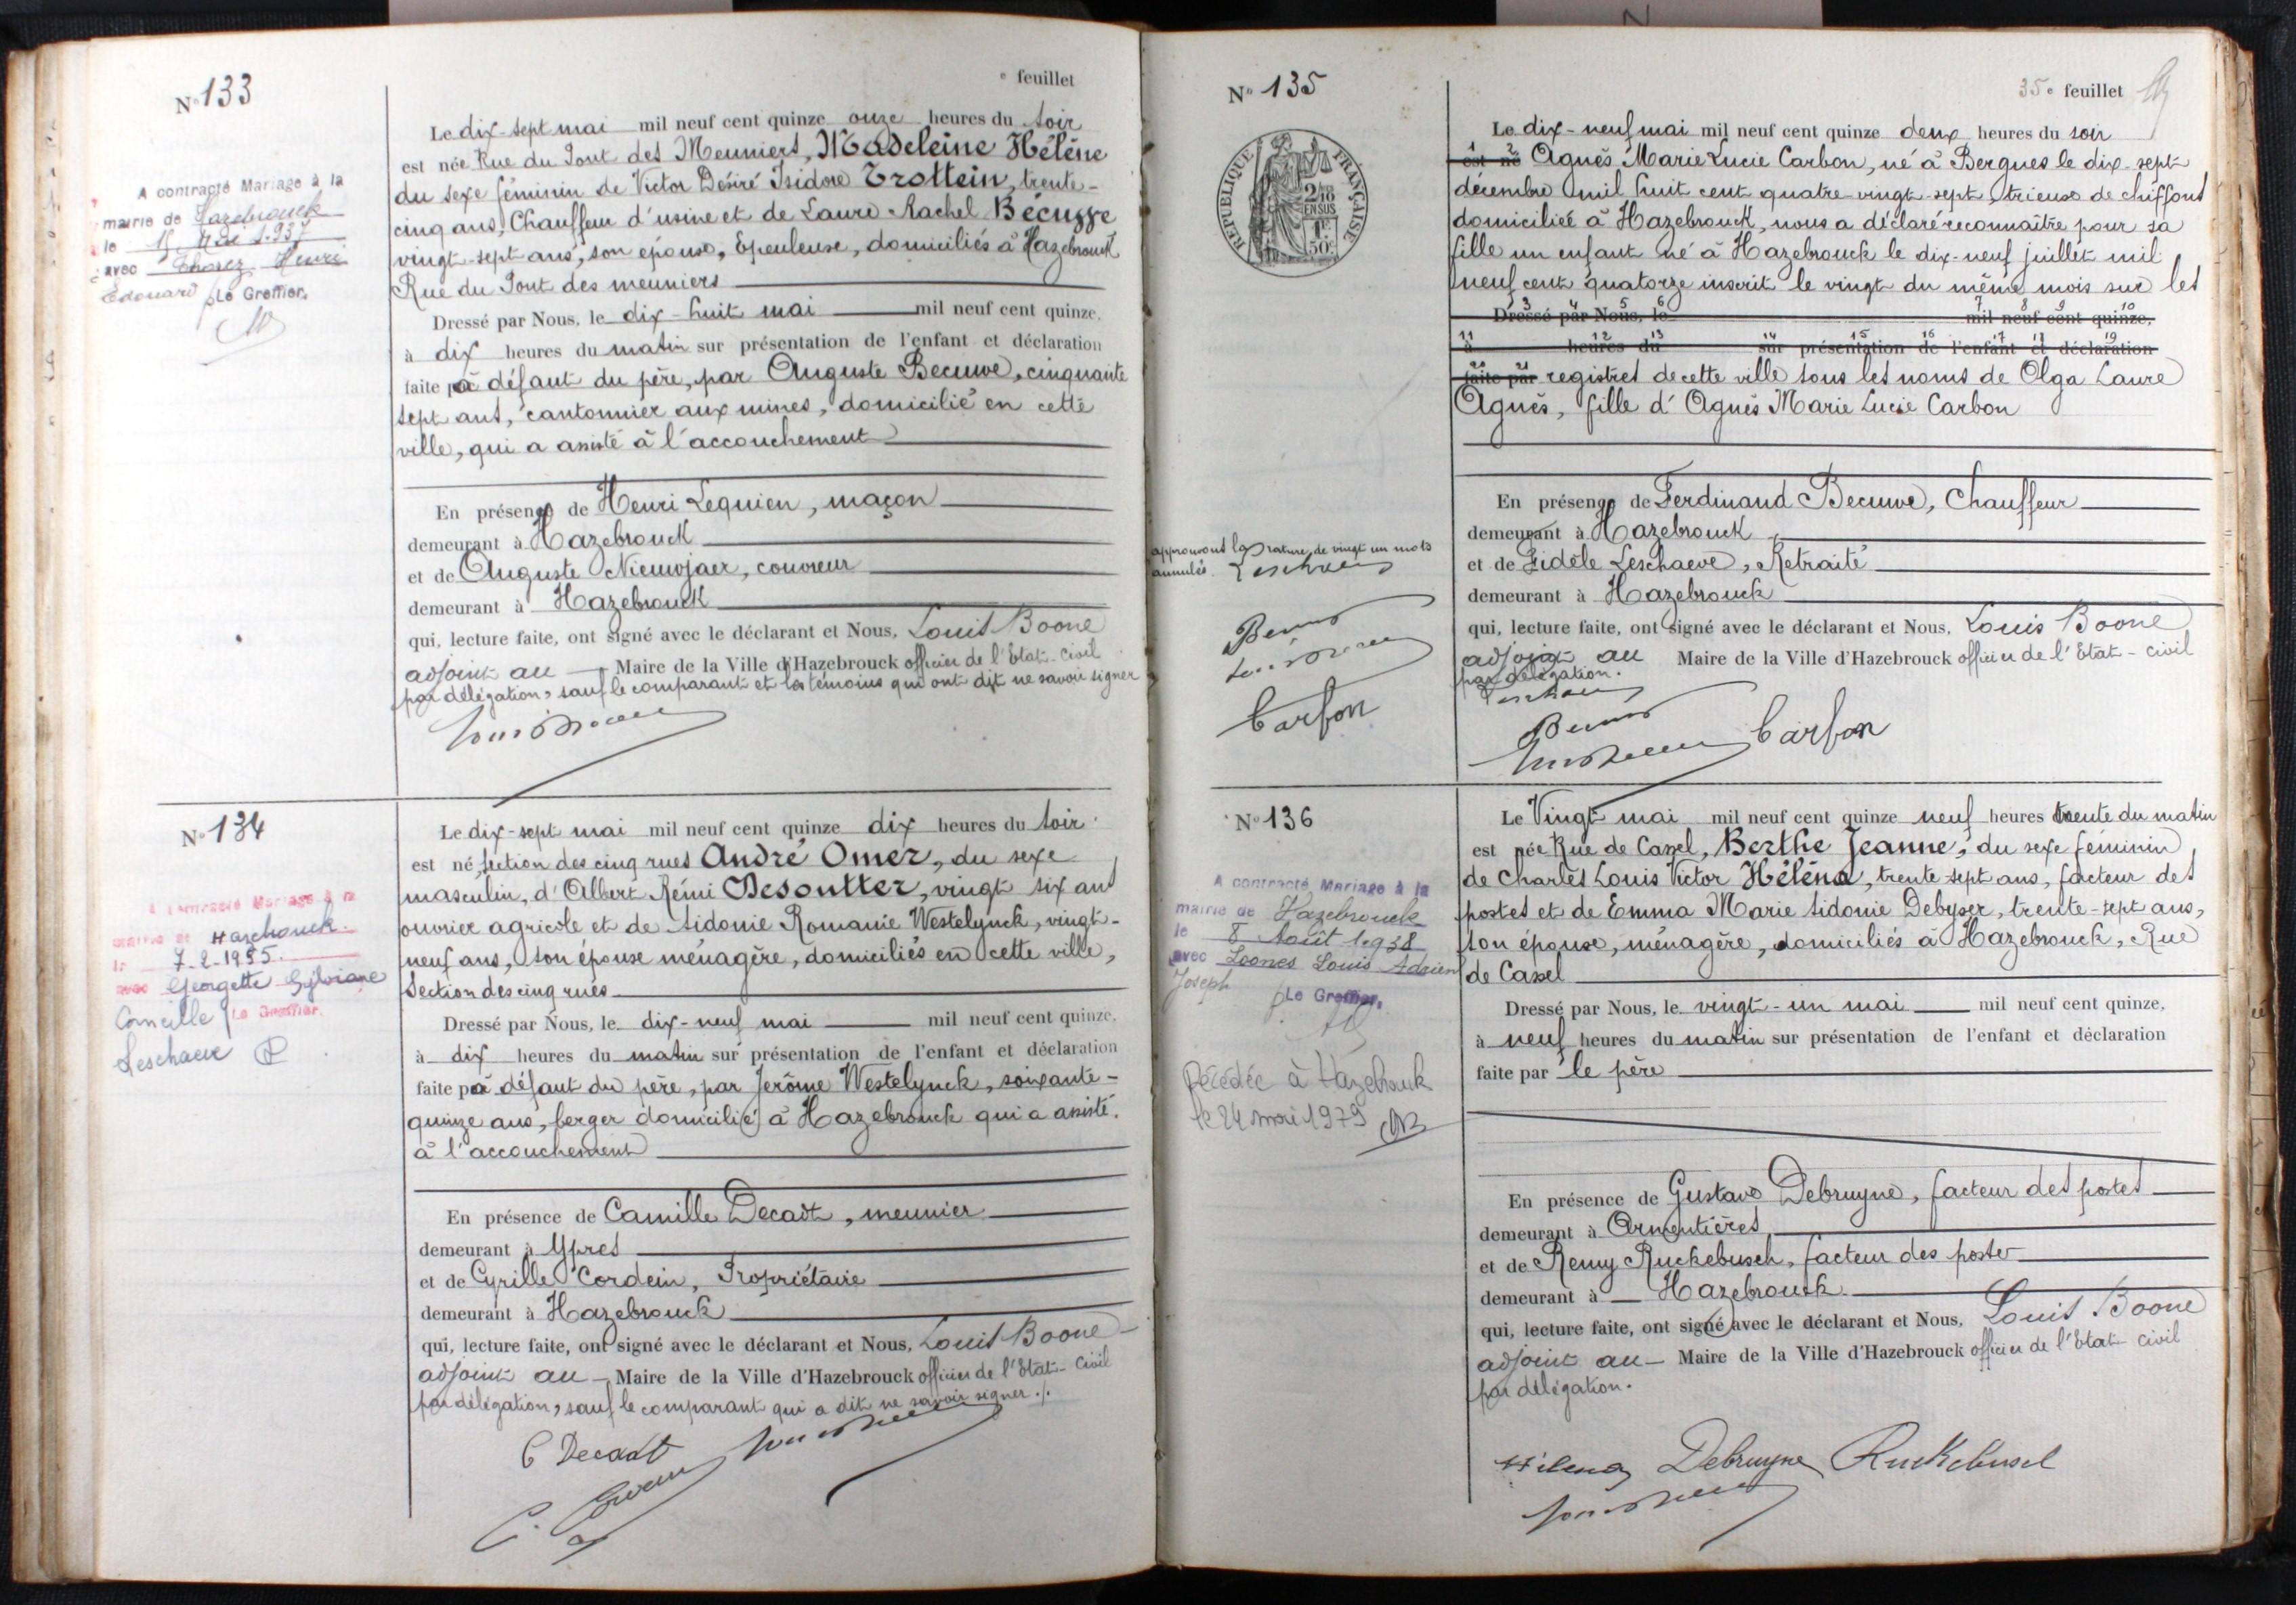 N° 133
e feuillet
Le dix-sept mai mil neuf cent quinze onze heures du soir
est née Rue du Pont des Meuniers, Madeleine Hélène
du sexe féminin de Victor Désiré Isidore Trottein, trente-
cinq ans, Chauffeur d'usine et de Laure Rachel Bécuwe
vingt-sept ans, son épouse, Epeuleuse, domiciliés à Hazebrouck
Rue du Pont des meuniers
Dressé par Nous, le dix-huit mai mil neuf cent quinze,
à dix heures du matin sur présentation de l'enfant et déclaration
faite à défaut du père, par Auguste Becuwe, cinquante
sept ans, cantonnier aux mines, domicilié en cette
ville, qui a assisté à l'accouchement
En présence de Henri Lequien, maçon
demeurant à Hazebrouck
et de Auguste Nieuwjaer, couvreur
demeurant à Hazebrouck
qui, lecture faite, ont signé avec le déclarant et Nous, Louis Boone
adjoint au Maire de la Ville d'Hazebrouck officier de l'Etat-civil
par délégation, sauf le comparant et les témoins qui ont dit ne savoir signer
A contracté Mariage à la
mairie de Hazebrouck
le 1937
avec Thorez Henri
Edouard Le Greffier,
N° 134
Le dix-sept mai mil neuf cent quinze dix heures du soir
est né, section des cinq rues André Omer, du sexe
masculin, d'Albert Rémi Desoutter, vingt six ans
ouvrier agricole et de Sidonie Romanie Westelynck, vingt-
neuf ans, son épouse ménagère, domiciliés en cette ville,
Section des cinq rues
Dressé par Nous, le dix-neuf mai mil neuf cent quinze,
à dix heures du matin sur présentation de l'enfant et déclaration
faite à défaut du père, par Jerôme Westelynck, soixante-
quinze ans, berger domicilié à Hazebrouck qui a assisté
à l'accouchement
En présence de Camille Decadt, meunier
demeurant à Ypres
et de Cyrille Cordein, Propriétaire
demeurant à Hazebrouck
qui, lecture faite, ont signé avec le déclarant et Nous, Louis Boone
adjoint au Maire de la Ville d'Hazebrouck officier de l'Etat-civil
par délégation, sauf le comparant qui a dit ne savoir signer ./.
C Decadt
A contracté Mariage à la
mairie de Hazebrouck.
le 7-2-1955.
avec Georgette Sylviane
Corneille Le Greffier.
Leschaeve
N° 135
35e feuillet
Le dix-neuf mai mil neuf cent quinze deux heures du soir
est né Agnès Marie Lucie Carbon, né à Bergues le dix-sept
décembre mil huit cent quatre-vingt-sept, trieuse de chiffons
domiciliée à Hazebrouck, nous a déclaré reconnaître pour sa
fille un enfant né à Hazebrouck le dix-neuf juillet mil
neuf cent quatorze inscrit le vingt du même mois sur les
Dressé par Nous, le mil neuf cent quinze,
à heures du sur présentation de l'enfant et déclaration
faite par registres de cette ville sous les noms de Olga Laure
Agnès, fille d'Agnès Marie Lucie Carbon
En présence de Ferdinand Becuwe, Chauffeur
demeurant à Hazebrouck
et de Fidèle Leschaeve, Retraité
demeurant à Hazebrouck
qui, lecture faite, ont signé avec le déclarant et Nous, Louis Boone
adjoint au Maire de la Ville d'Hazebrouck officier de l'Etat-civil
par délégation.
Carbon
REPUBLIQUE FRANÇAISE
2/10 EN SUS
1F 50c
approuvons la rature de vingt un mots
annulés
Carbon
N° 136
Le Vingt mai mil neuf cent quinze neuf heures trente du matin
est née Rue de Cassel, Berthe Jeanne, du sexe féminin
de Charles Louis Victor Héléna, trente-sept ans, facteur des
postes et de Emma Marie Sidonie Debyser, trente-sept ans,
son épouse, ménagère, domiciliés à Hazebrouck, Rue
de Cassel
Dressé par Nous, le vingt-un mai mil neuf cent quinze,
à neuf heures du matin sur présentation de l'enfant et déclaration
faite par le père
En présence de Gustave Debruyne, facteur des postes
demeurant à Armentières
et de Remy Ruckebusch, facteur des poste
demeurant à Hazebrouck
qui, lecture faite, ont signé avec le déclarant et Nous, Louis Boone
adjoint au Maire de la Ville d'Hazebrouck officier de l'Etat-civil
par délégation.
Héléna Debruyne Ruckebusch
A contracté Mariage à la
mairie de Hazebrouck
le 8 Août 1938
avec Loones Louis Adrien
Joseph Le Greffier,
Décédée à Hazebrouck
le 24 mai 1979